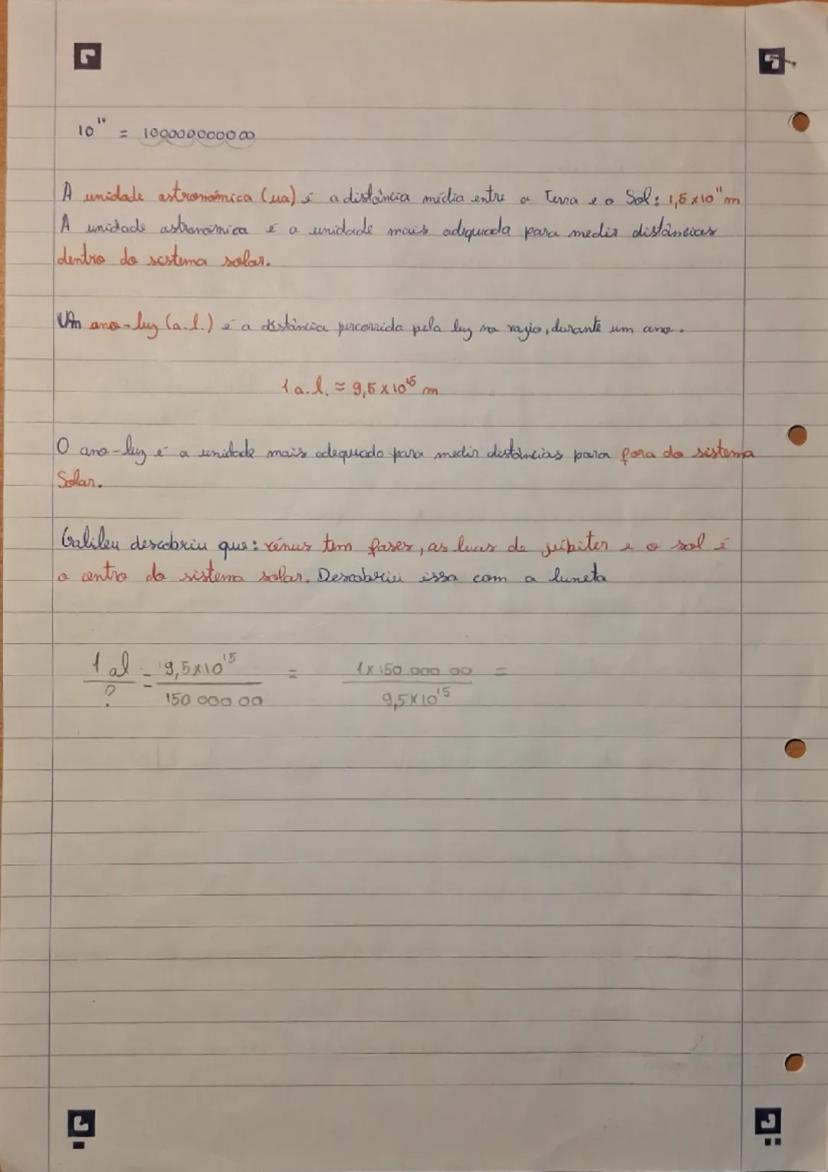 10¹¹ = 100000000000
A unidade astronómica (ua) é a distância média entre a Terra e o Sol: 1,5 x 10¹¹ m
A unidade astronómica é a unidade mais adequada para medir distâncias
dentro do sistema solar.
Um ano-luz (a.l.) é a distância percorrida pela luz no vazio, durante um ano.
1 a.l. ≈ 9,5 x 10¹⁵ m
O ano-luz é a unidade mais adequado para medir distâncias para fora do sistema
Solar.
Galileu descobriu que: vénus tem fases, as luas de júpiter e o sol é
o centro do sistema solar. Descobriu isso com a luneta
1 al / ? = 9,5 x 10¹⁵ / 150 000 00 = 1 x 150 000 00 / 9,5 x 10¹⁵ =